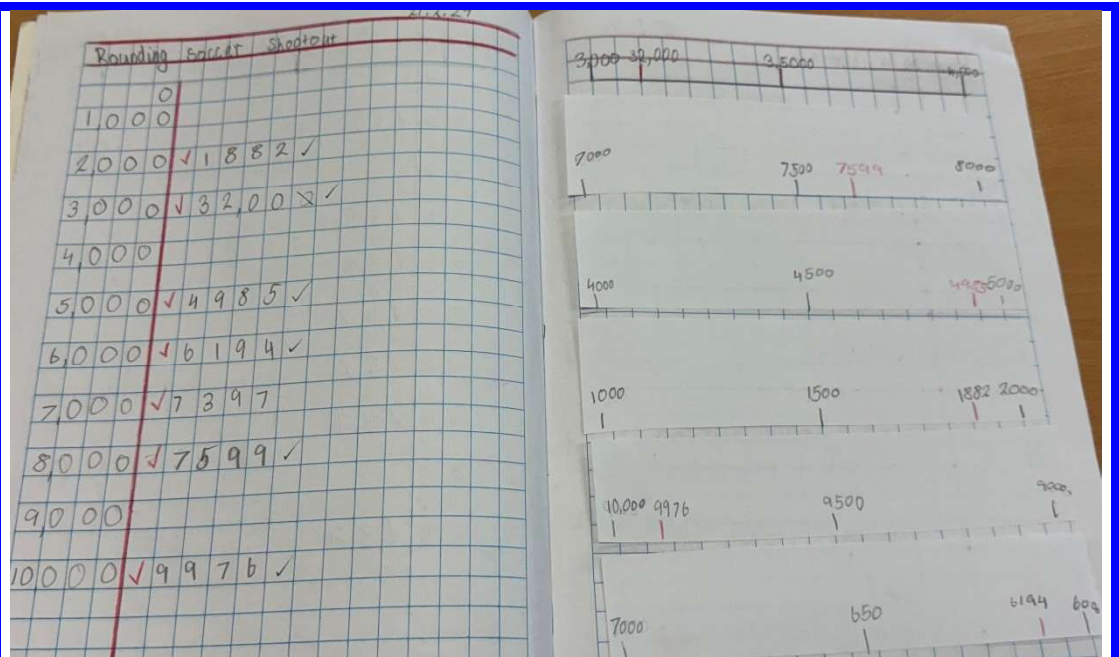 Rounding Soccer Shootout
0
1,000
2000 ✓ 1882 ✓
3,000 ✓ 32,00 ✓
4,000
5,000 ✓ 4985 ✓
6,000 ✓ 6194 ✓
7,000 ✓ 7397
8,000 ✓ 7599 ✓
9,000
10000 ✓ 9976 ✓
3,000 32,000 3,5000
7000 7500 7599 8000
4000 4500 4985 5000
1000 1500 1882 2000
10,000 9976 9500 9000,
7000 650 6194